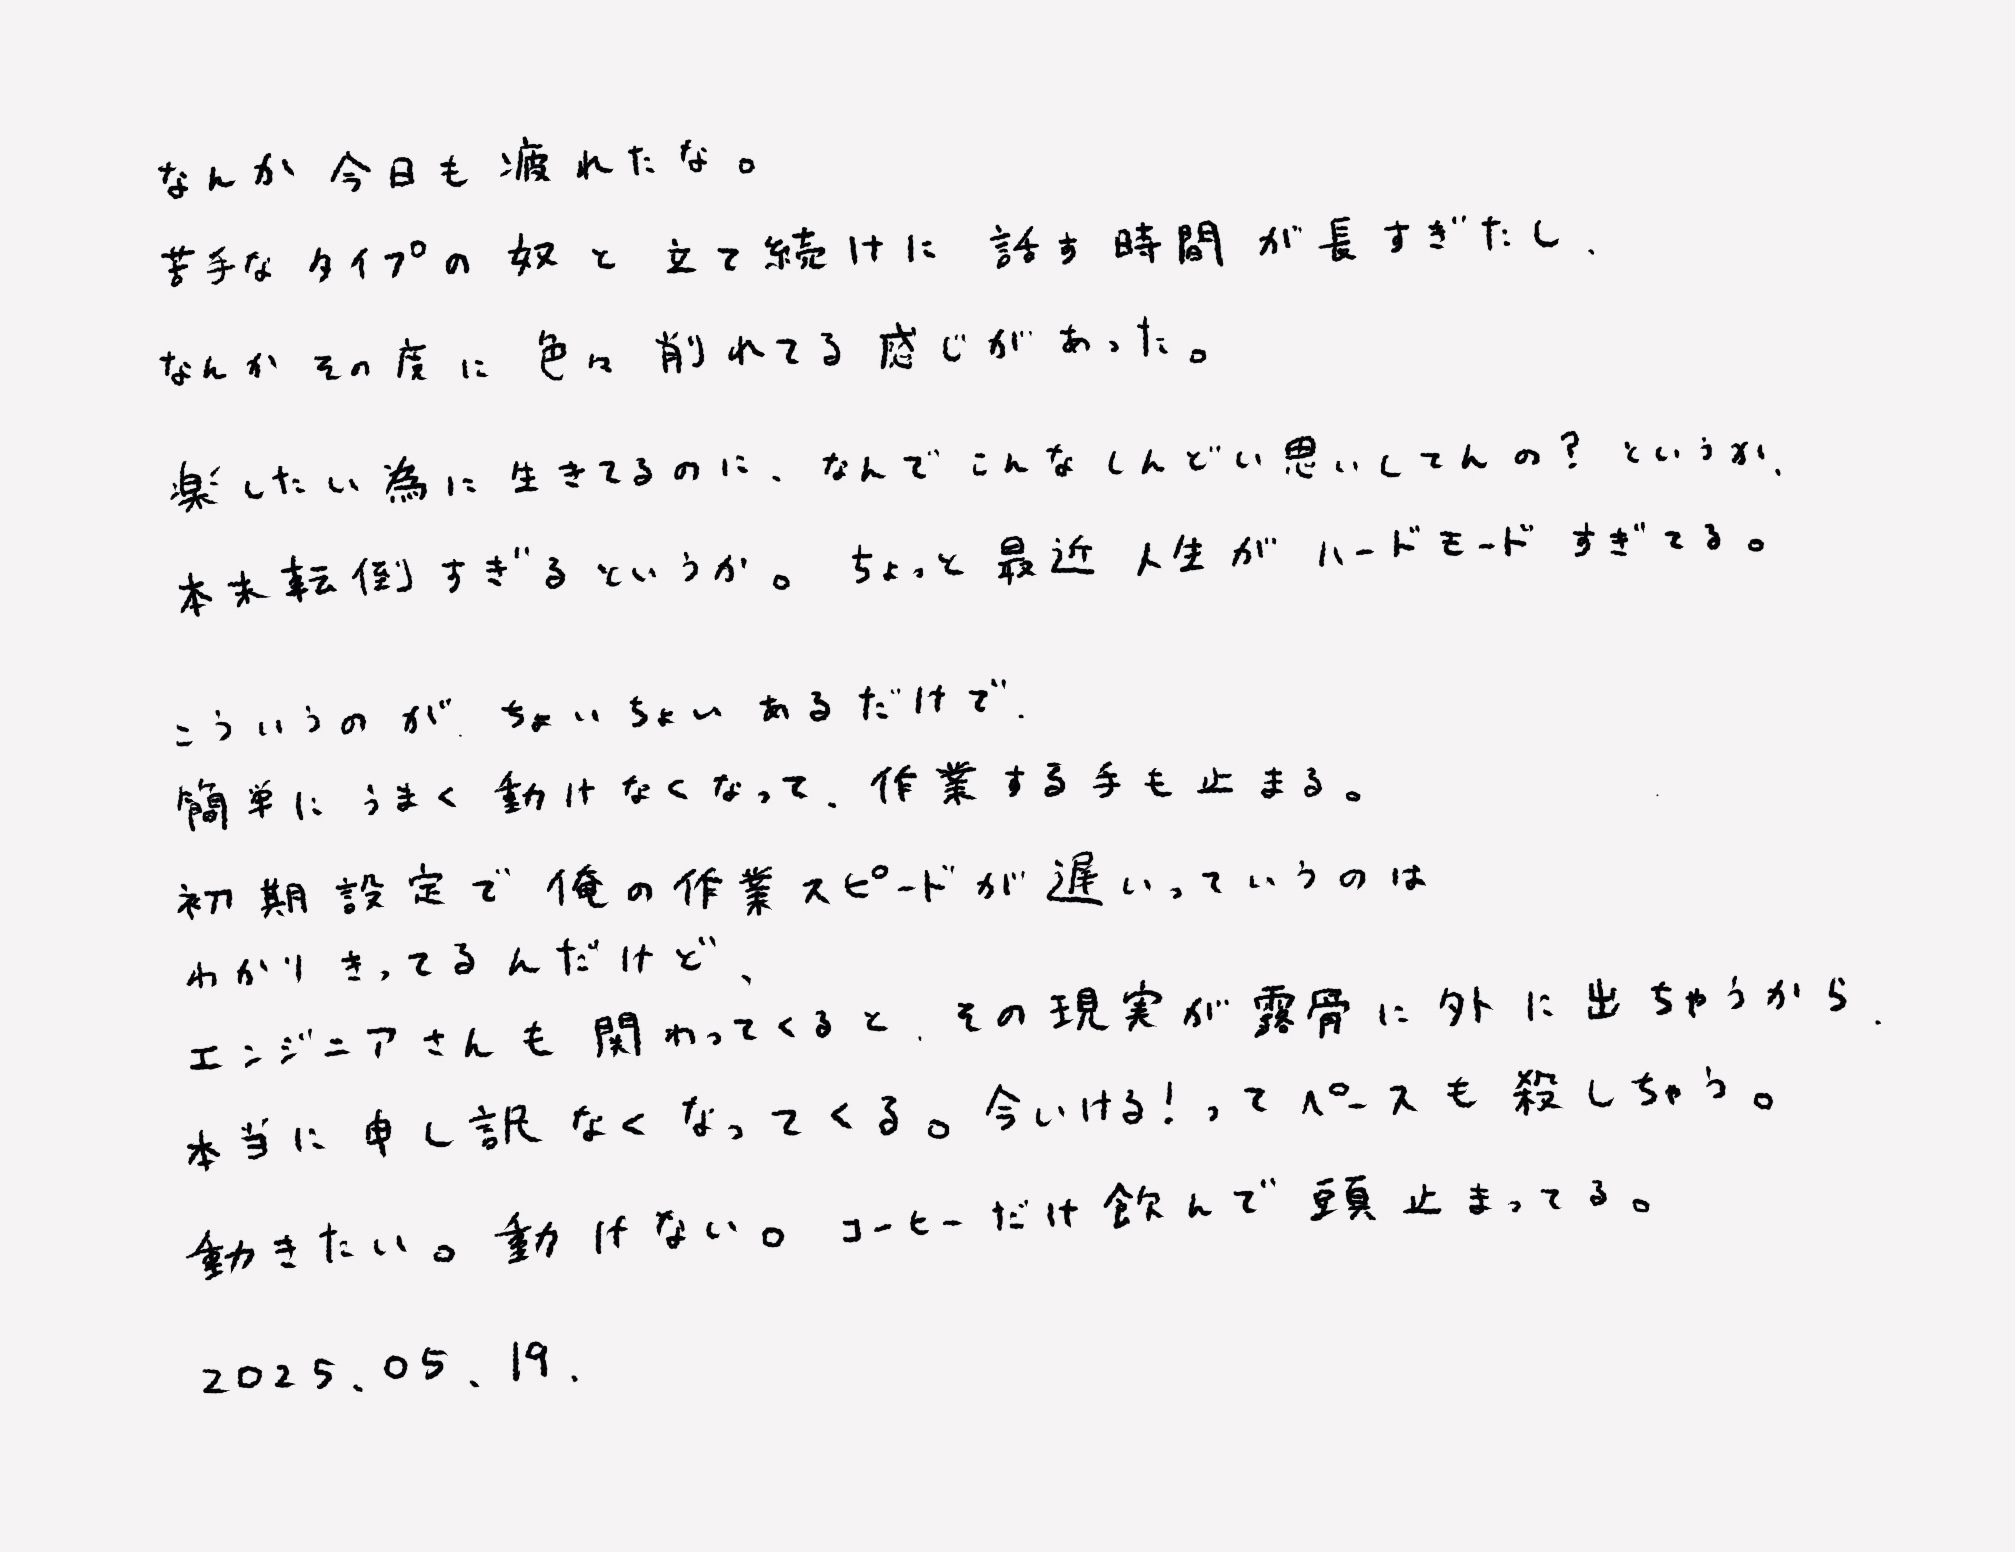 なんか今日も疲れたな。
苦手なタイプの奴と立て続けに話す時間が長すぎたし、
なんかその度に色々削れてる感じがあった。
楽したい為に生きてるのに、なんでこんなしんどい思いしてんの？というか、
本末転倒すぎるというか。ちょっと最近人生がハードモードすぎてる。
こういうのが、ちょいちょいあるだけで、
簡単にうまく動けなくなって、作業する手も止まる。
初期設定で俺の作業スピードが遅いっていうのは
わかりきってるんだけど、
エンジニアさんも関わってくると、その現実が露骨に外に出ちゃうから、
本当に申し訳なくなってくる。今いける！ってペースも殺しちゃう。
動きたい。動けない。コーヒーだけ飲んで頭止まってる。
2025.05.19.